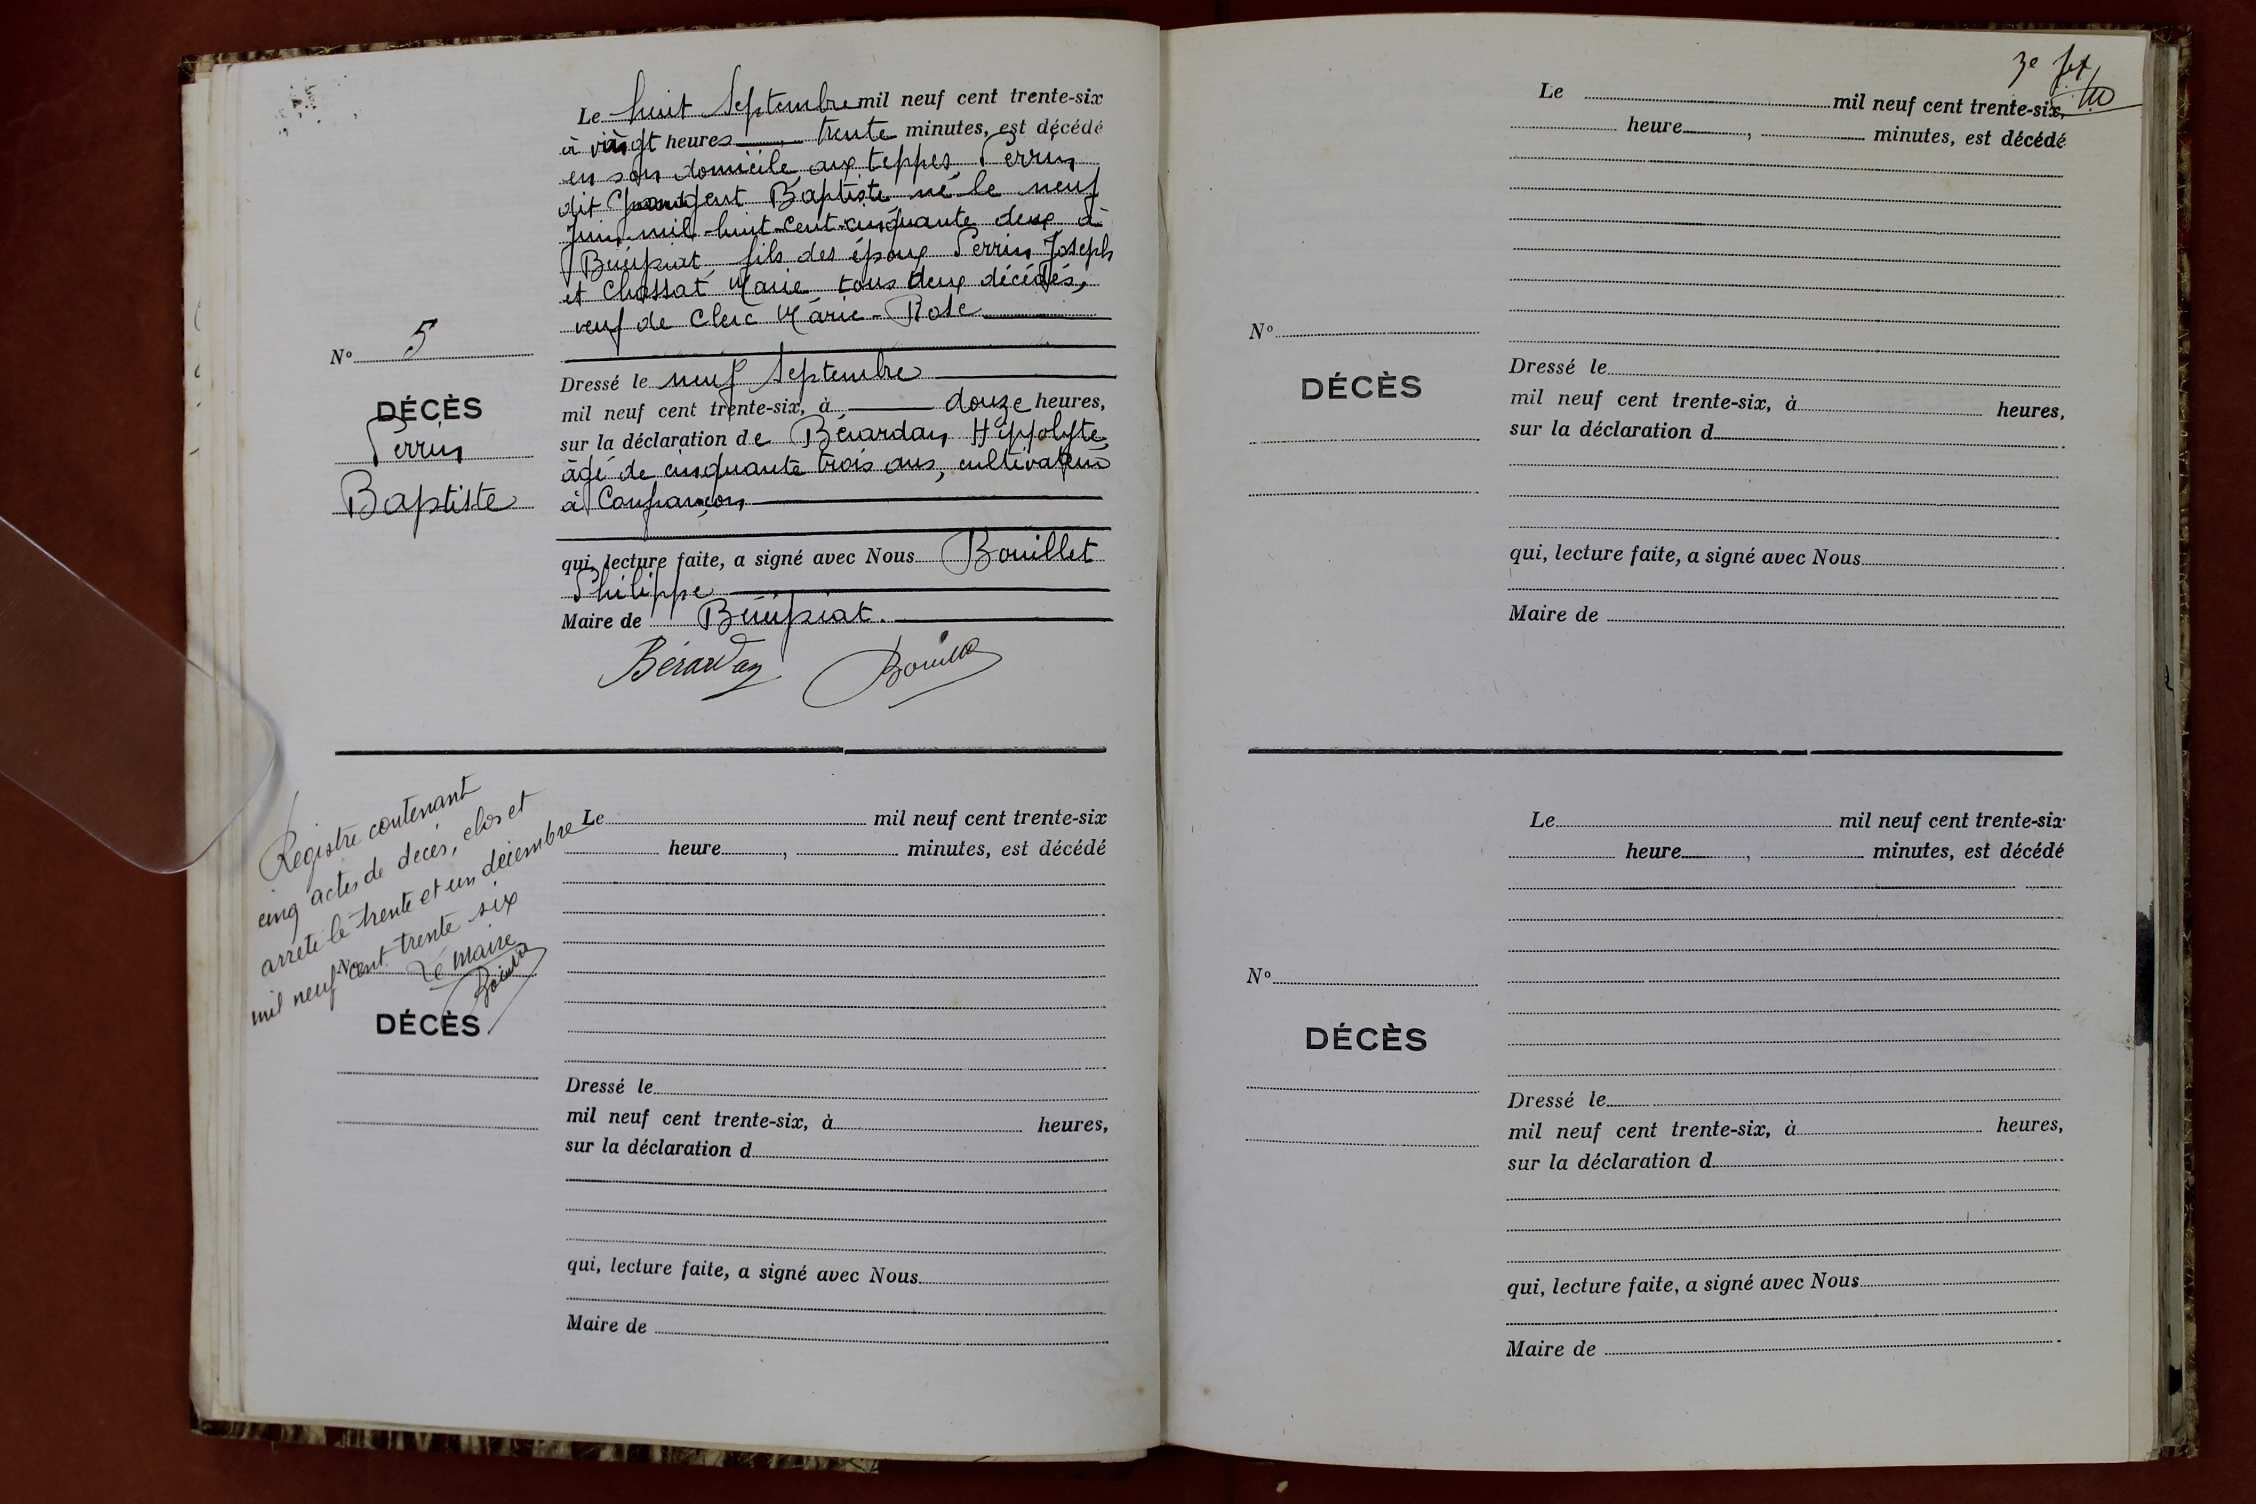 Le huit Septembre mil neuf cent trente-six
à vingt heures trente minutes, est décédé
en son domicile aux teppes, Perrin
dit Baptiste né le neuf
Juin mil huit cent cinquante deux à
Bénépiat fils des époux Perrin Joseph
et Chossat Marie tous deux décédés,
veuf de Clerc Marie-Rose
N° 5
DÉCÈS
Perrin
Baptiste
Dressé le neuf Septembre
mil neuf cent trente-six, à douze heures,
sur la déclaration de Bérardan Hippolyte,
âgé de cinquante trois ans, cultivateur
à Confrançon
qui, lecture faite, a signé avec Nous Bouillet
Philippe
Maire de Bénépiat.
Bérardan Bouillet
Registre contenant
cinq actes de decès, clos et
arrêté le trente et un décembre
mil neuf cent trente six
Le Maire
Bouillet
Le mil neuf cent trente-six
heure , minutes, est décédé
N°
DÉCÈS
Dressé le
mil neuf cent trente-six, à heures,
sur la déclaration d
qui, lecture faite, a signé avec Nous
Maire de
3e
Le mil neuf cent trente-six,
heure , minutes, est décédé
N°
DÉCÈS
Dressé le
mil neuf cent trente-six, à heures,
sur la déclaration d
qui, lecture faite, a signé avec Nous
Maire de
Le mil neuf cent trente-six
heure , minutes, est décédé
N°
DÉCÈS
Dressé le
mil neuf cent trente-six, à heures,
sur la déclaration d
qui, lecture faite, a signé avec Nous
Maire de